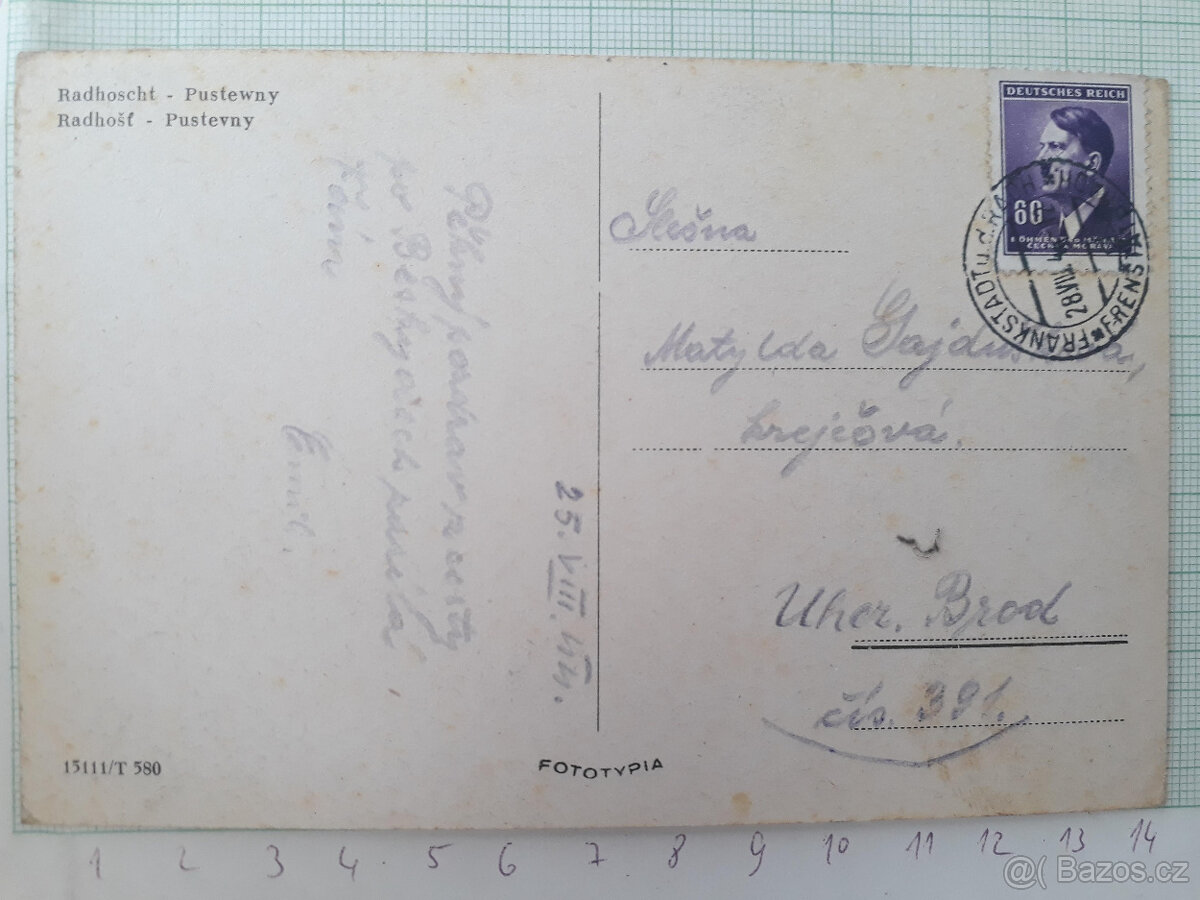 Radhoscht - Pustewny
Radhošť - Pustevny
DEUTSCHES REICH
60
BÖHMEN UND MÄHREN
ČECHY A MORAVA
FRANKSTADT u.d. RADH
FRENŠT
28 VIII
25. VIII. 44.
Pěkný pozdrav z cesty
po Beskydech posílá
Vám
Emil.
Slečna
Matylda
krejčová.
Uher. Brod
čís. 391.
15111/T 580
FOTOTYPIA
1 2 3 4 5 6 7 8 9 10 11 12 13 14
@( Bazos.cz